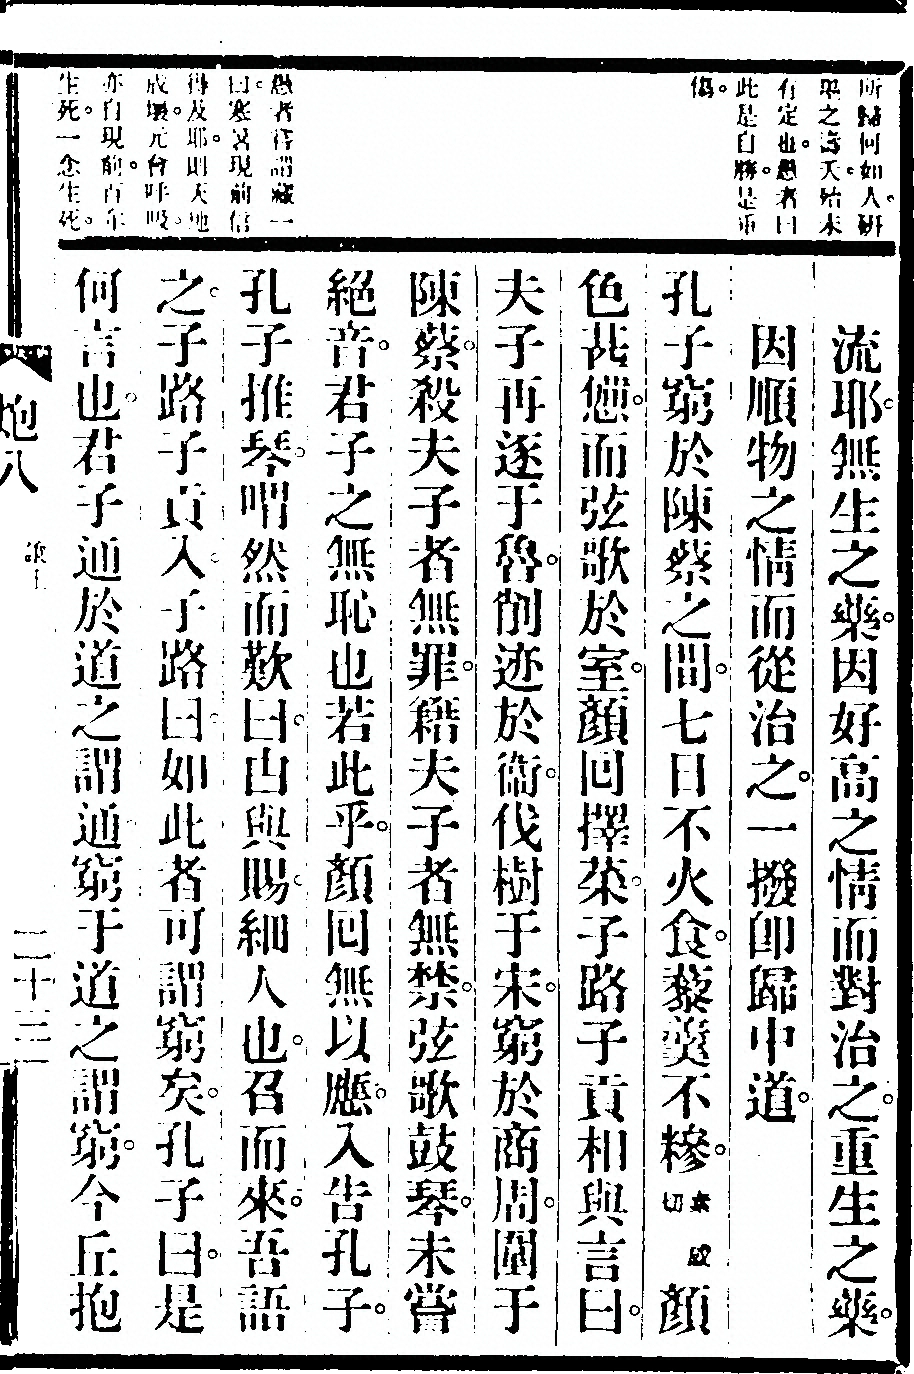 所歸何如人。研
之壽夭。殆未
有定也。愚者曰
此是自勝。是重
傷。
流耶。無生之藥。因好高之情而對治之。重生之藥。
因順物之情而從治之。一撥卽歸中道。
孔子窮於陳蔡之間。七日不火食。藜羹不糝。素感切顏
色甚憊。而弦歌於室。顏回擇菜。子路子貢相與言曰。
夫子再逐于魯。削迹於衞。伐樹于宋。窮於商周。圍于
陳蔡。殺夫子者無罪。籍夫子者無禁。弦歌鼓琴。未嘗
絕音。君子之無恥也若此乎。顏回無以應。入告孔子。
孔子推琴。喟然而歎曰。由與賜。細人也。召而來。吾語
之。子路子貢入。子路曰。如此者可謂窮矣。孔子曰。是
何言也。君子通於道之謂通。窮于道之謂窮。今丘抱
愚者荅謂藏一
曰。寒暑現前信
得及耶。則天地
成壞。元會呼吸。
亦自現前。百年
生死。一念生死。
炮八
二十三